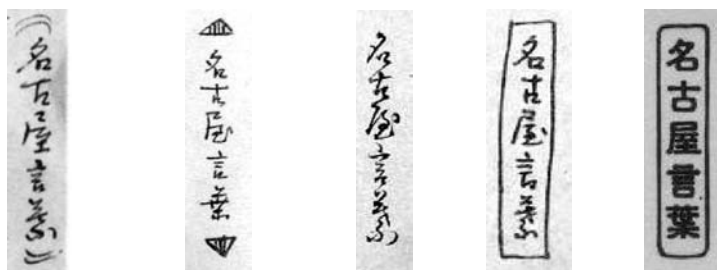 名古屋言葉
名古屋言葉
名古屋言葉
名古屋言葉
名古屋言葉